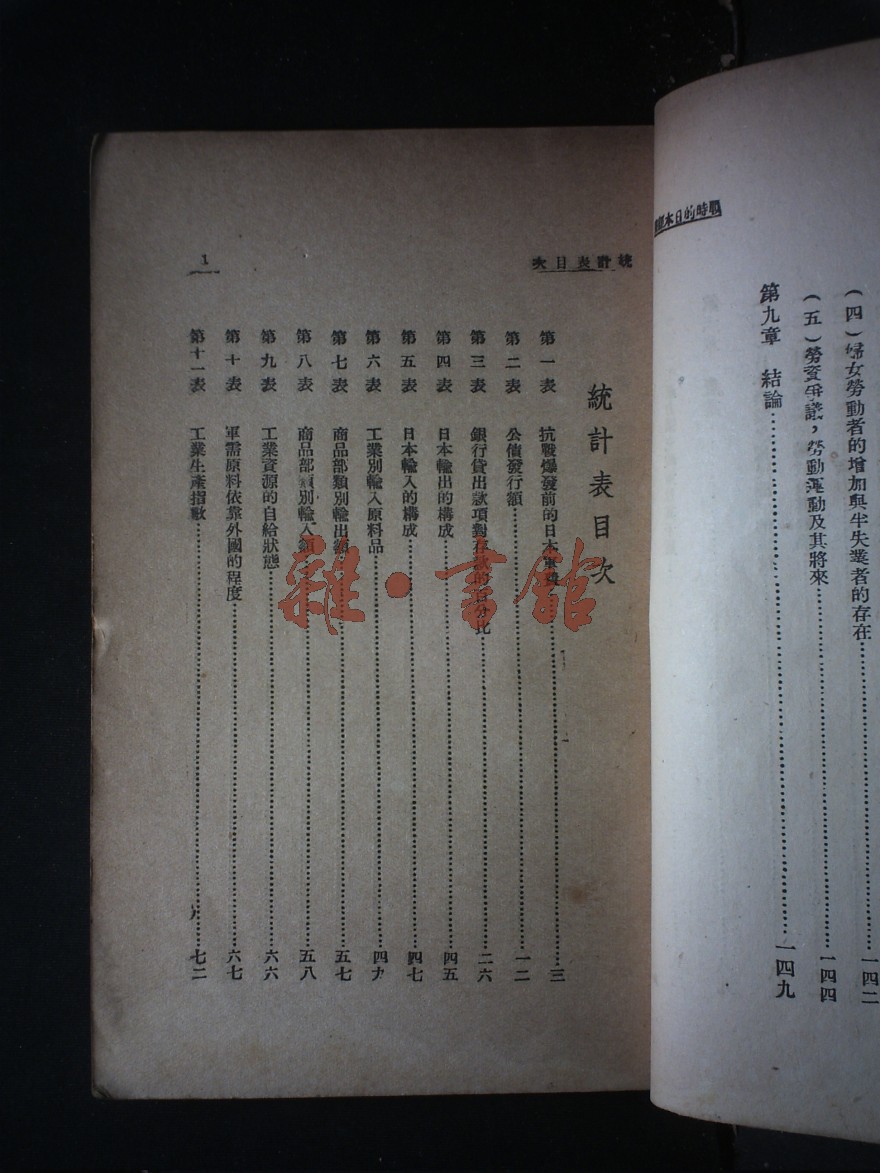 戰時的日本
(四)婦女勞動者的增加與半失業者的存在……一四二
(五)勞資爭議,勞動運動及其將來……一四四
第九章 結論……一四九
統計表目次
1
統計表目次
第一表 抗戰爆發前的日本軍費……三
第二表 公債發行額……一二
第三表 銀行貸出款項對存款的百分比……二六
第四表 日本輸出的構成……四五
第五表 日本輸入的構成……四七
第六表 工業別輸入原料品……四九
第七表 商品部類別輸出額……五七
第八表 商品部類別輸入額……五八
第九表 工業資源的自給狀態……六六
第十表 軍需原料依靠外國的程度……六七
第十一表 工業生產指數……七二
雜·書館